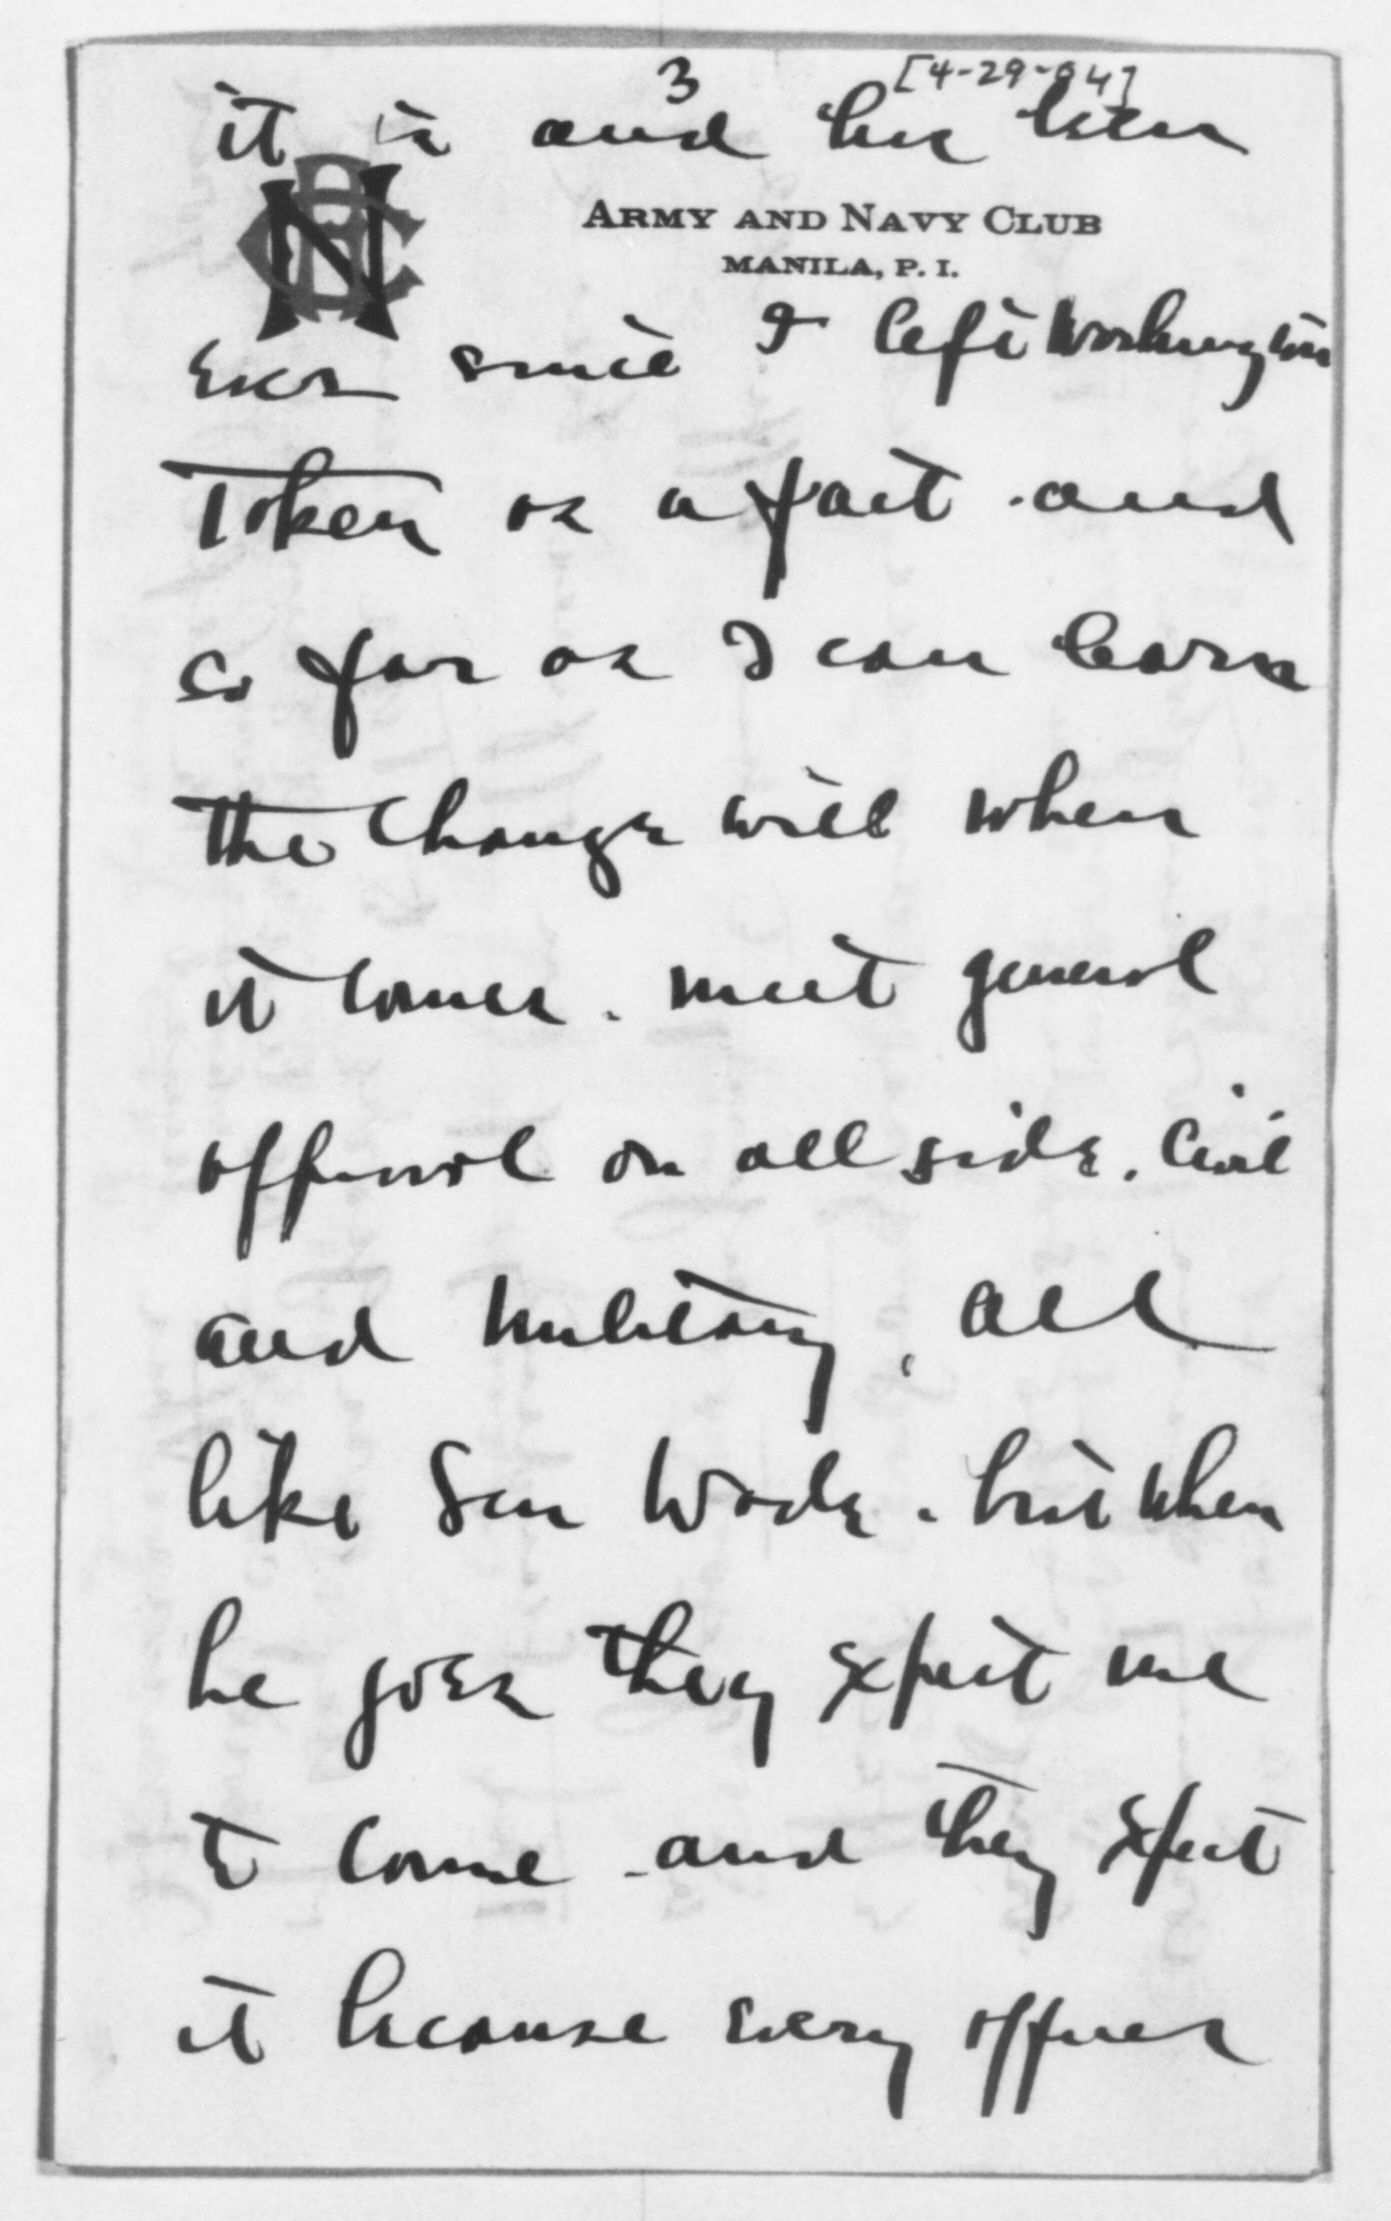 3 [4-29-04]
it is and has been
ARMY AND NAVY CLUB
MANILA, P. I.
ever since I left Washington
Taken as a fact and
so far as I can learn
the change will when
it comes. meet general
approval on all sides. Civil
and military, all
like Gen Wade. but when
he goes they expect me
to come and they expect
it because every officer